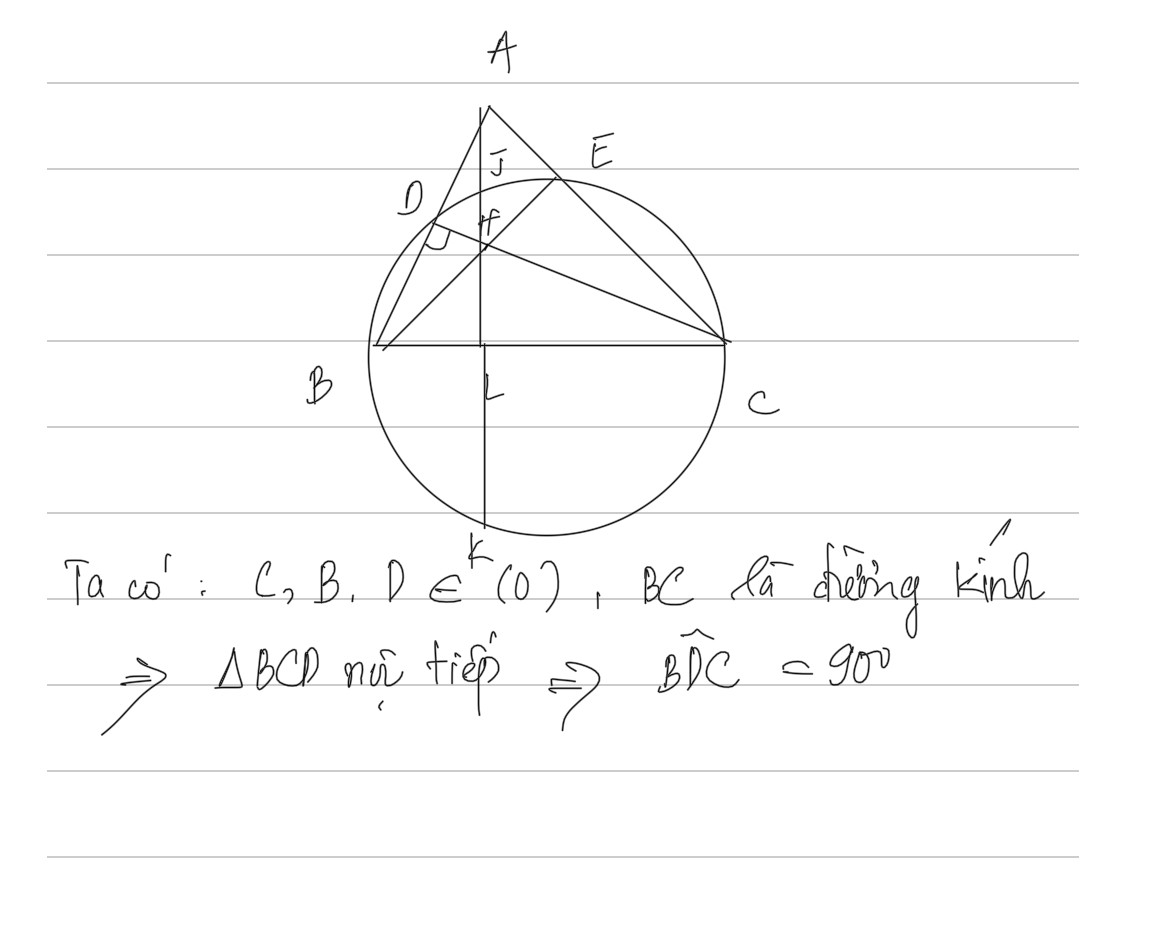 A
J
E
D
H
B
L
C
K
Ta có : C, B, D ∈ (O) , BC là đường kính
⇒ ΔBCD nội tiếp ⇒ BD̂C = 90⁰